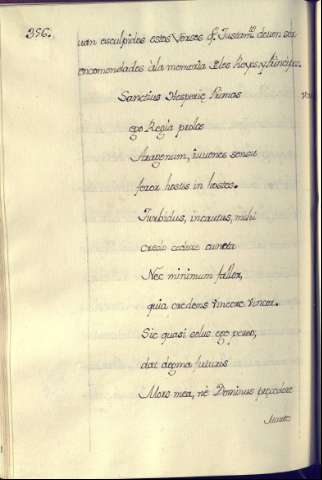 356.
van esculpidos estos Versos q̃ Justamte. deven ser
encomendados àla memoria de los Reyes, y Principes.
Sanctius Hesperię Primas
ego Regia proles
Aragonum, iuvenes sensit
ferox hostis in hostes.
Turbidus, incautus, mihi
credo cedere cuncta
Nec minimum fallor,
quia credens vincere vincor.
Sic quasi solus ego pereo,
dat dogma futuris
Mors mea, nè Dominus pręcedere